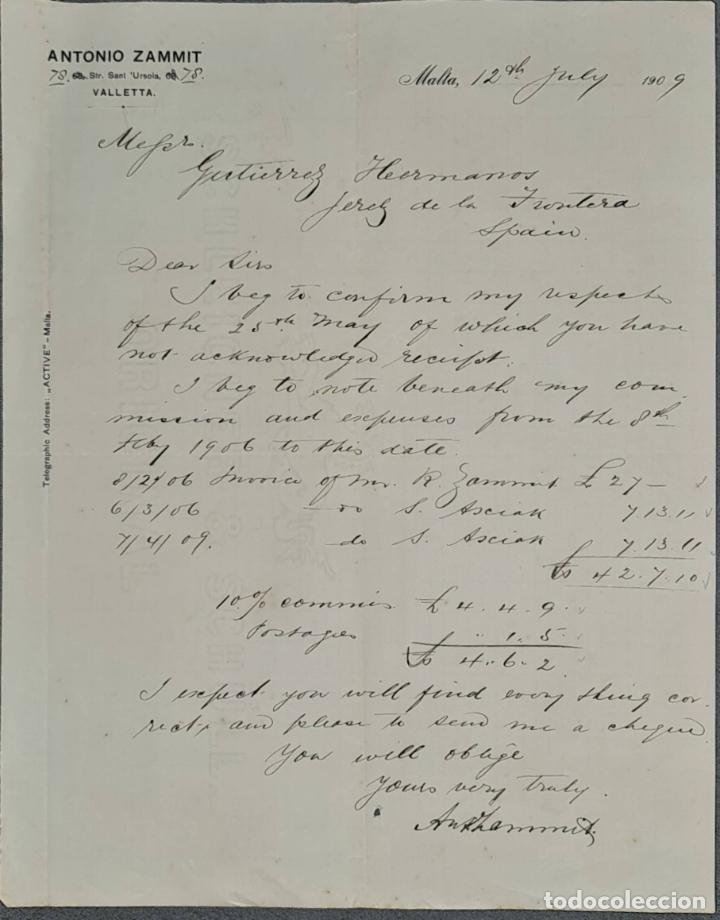 ANTONIO ZAMMIT
78. Str. Sant 'Ursola, 78.
VALLETTA.
Malta, 12th July 1909
Messrs.
Gutierrez Hermanos
Jerez de la Frontera
Spain.
Dear Sirs
I beg to confirm my respects
of the 25th May of which you have
not acknowledged receipt.
I beg to note beneath my com
mission and expenses from the 8th
Feby 1906 to this date.
8/2/06 Invoice of Mr. R. Zammit £ 27 —
6/3/06 — do S. Asciak 7.13.11
7/4/09. — do S. Asciak 7.13.11
£ 42.7.10
10% commis £ 4.4.9.
Postages 1.5.
£ 4.6.2.
I expect you will find every thing cor
rect, and please to send me a cheque
You will oblige
Yours very truly.
Ant Zammit
Telegraphic Address: „ACTIVE" - Malta.
todocoleccion